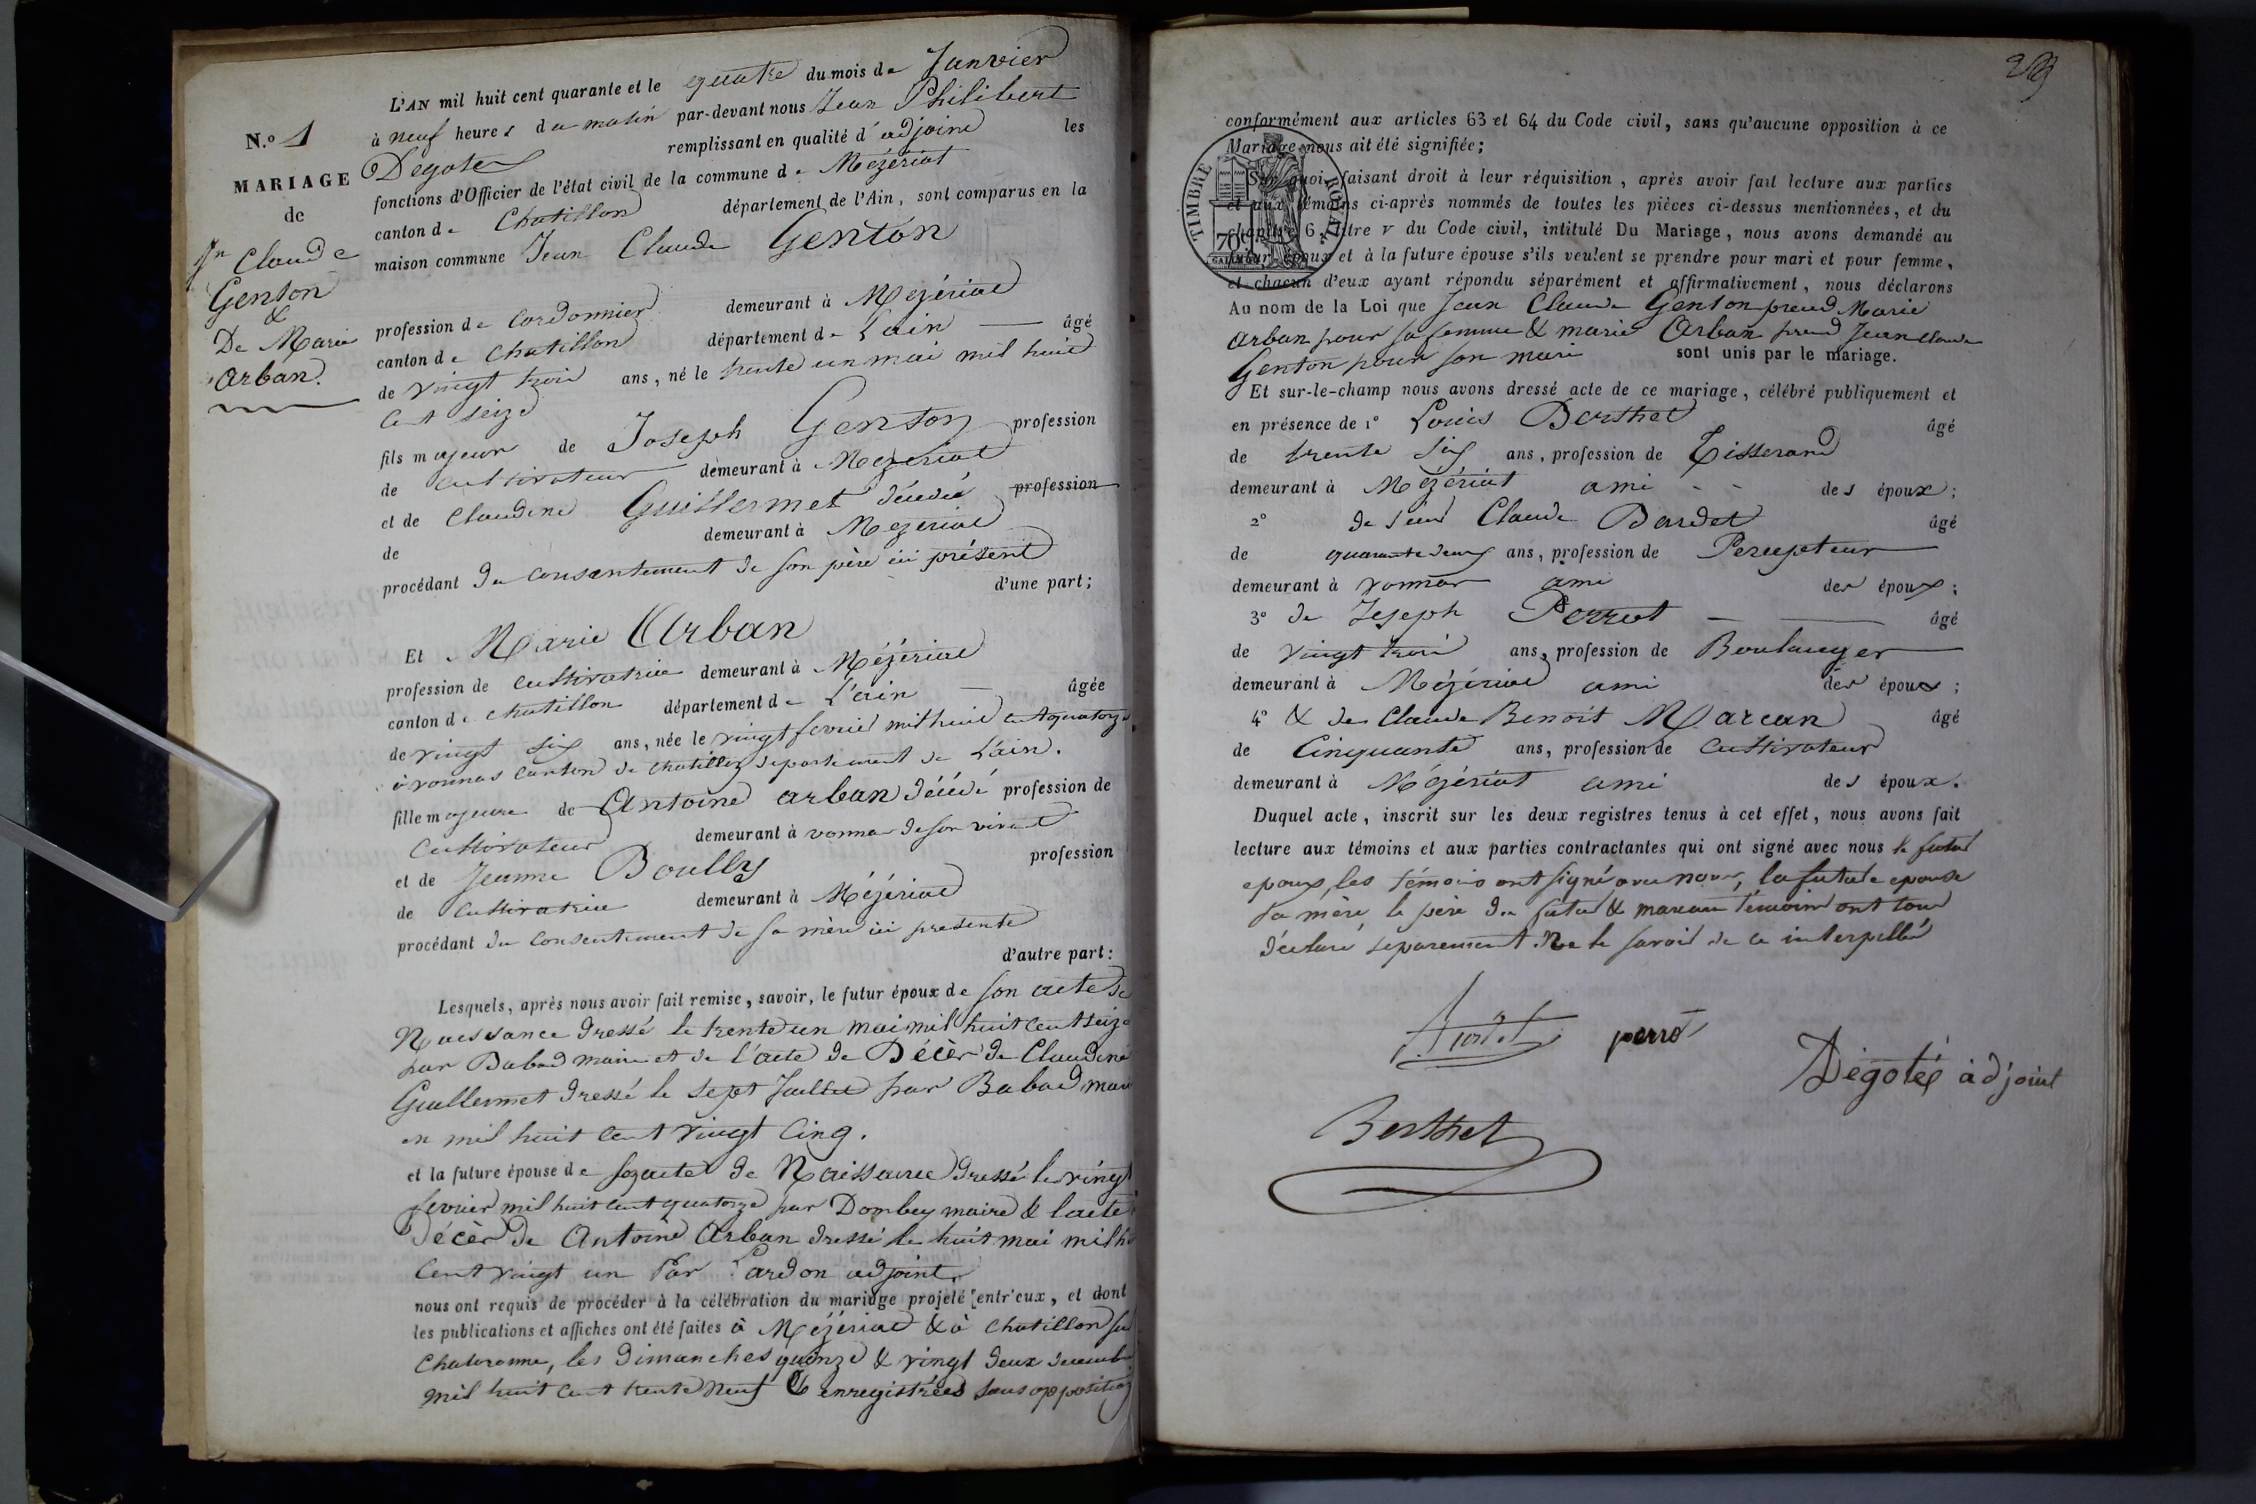 N.º 1
MARIAGE
de
Jn Claude
Genton
&
De Marie
Arban.
L'AN mil huit cent quarante et le quatre du mois de Janvier
à neuf heures du matin par-devant nous Jean Philibert
Dégoten remplissant en qualité d'adjoint les
fonctions d'Officier de l'état civil de la commune de Mézériat
canton de Chatillon département de l'Ain, sont comparus en la
maison commune Jean Claude Genton
profession de Cordonnier demeurant à Mezériat
canton de Chatillon département de L'ain âgé
de vingt trois ans, né le trente un mai mil huit
cent seize
fils majeur de Joseph Genton profession
de cultivateur demeurant à Mezeriat
et de Claudine Guillermet décédée profession
de demeurant à Mezeriat
procédant du consentement de son père ici présent
d'une part;
Et Marie Arban
profession de cultivatrice demeurant à Mézériat
canton de chatillon département de L'ain âgée
de vingt six ans, née le vingt fevrier mil huit cent quatorze
à vonnas canton de chatillon departement de L'ain.
fille majeure de Antoine arban décédé profession de
cultivateur demeurant à vonnas de son vivant
et de Jeanne Boully profession
de cultivatrice demeurant à Mézériat
procédant du consentement de sa mère ici presente
d'autre part:
Lesquels, après nous avoir fait remise, savoir, le futur époux de son acte de
Naissance dressé le trente un mai mil huit cent seize
par Babad maire et de l'acte de Décès de Claudine
Guillermet dressé le sept Juillet par Babad maire
en mil huit cent vingt cinq.
et la future épouse de son acte de Naissance dressé le vingt
fevrier mil huit cent quatorze par Dombey maire & l'acte
Décès de Antoine Arban dressé le huit mai mil h
cent vingt un Par Pardon adjoint.
nous ont requis de procéder à la célébration du mariage projeté entr'eux, et dont
les publications et affiches ont été faites à Mézériat & à Chatillon sur
Chalaronne, les dimanches quinze & vingt deux decembre
mil huit cent trente neuf & enregistrées sans opposition
conformément aux articles 63 et 64 du Code civil, sans qu'aucune opposition à ce
Mariage nous ait été signifiée;
TIMBRE ROYAL
70c
Sur quoi, faisant droit à leur réquisition, après avoir fait lecture aux parties
et aux témoins ci-après nommés de toutes les pièces ci-dessus mentionnées, et du
chapitre 6, titre v du Code civil, intitulé Du Mariage, nous avons demandé au
futur époux et à la future épouse s'ils veulent se prendre pour mari et pour femme,
et chacun d'eux ayant répondu séparément et affirmativement, nous déclarons
Au nom de la Loi que Jean Claude Genton prend Marie
Arban pour sa femme & marie Arban prend Jean Claude
Genton pour son mari sont unis par le mariage.
Et sur-le-champ nous avons dressé acte de ce mariage, célébré publiquement et
en présence de 1º Louis Berthet âgé
de trente six ans, profession de Tisserand
demeurant à Mézériat ami des époux;
2º de sieur Claude Bardet âgé
de quarante deux ans, profession de Percepteur
demeurant à vonnas ami des époux;
3º de Joseph Perrot âgé
de vingt trois ans, profession de Boulanger
demeurant à Mézériat ami des époux;
4º & de Claude Benoit Marcan âgé
de Cinquante ans, profession de cultivateur
demeurant à Mézériat ami des époux.
Duquel acte, inscrit sur les deux registres tenus à cet effet, nous avons fait
lecture aux témoins et aux parties contractantes qui ont signé avec nous le futur
epoux, les témoins ont signé avec nous, la future epouse
sa mère, le père du futur & marcan témoin ont tous
déclaré separement ne le savoir de ce interpellés
perrot
Dégotex adjoint
Berthet